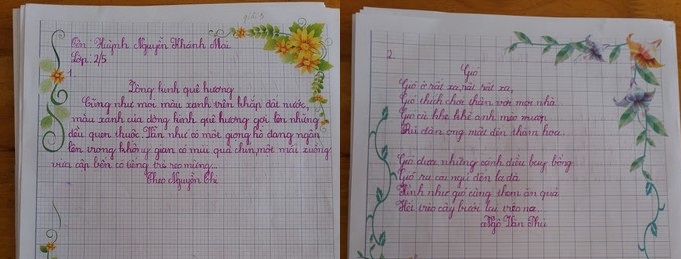 Tên: Huỳnh Nguyễn Khánh Mai
Lớp 2/5
1.
Dòng kinh quê hương
Cũng như mọi màu xanh trên khắp đất nước,
màu xanh của dòng kinh quê hương gợi lên những
điều quen thuộc. Vẫn như có một giọng hò đang ngân
lên trong không gian có mùi quả chín, một mái xuồng
vừa cập bến có tiếng trẻ reo mừng...
Theo Nguyễn Thi
2.
Gió
Gió ở rất xa, rất rất xa,
Gió thích chơi thân với mọi nhà
Gió cù khe khẽ anh mèo mướp
Rủ đàn ong mật đến thăm hoa.
Gió đưa những cánh diều bay bổng
Gió ru cái ngủ đến la đà
Hình như gió cũng thèm ăn quả
Hết trèo cây bưởi lại trèo na...
Ngô Văn Phú